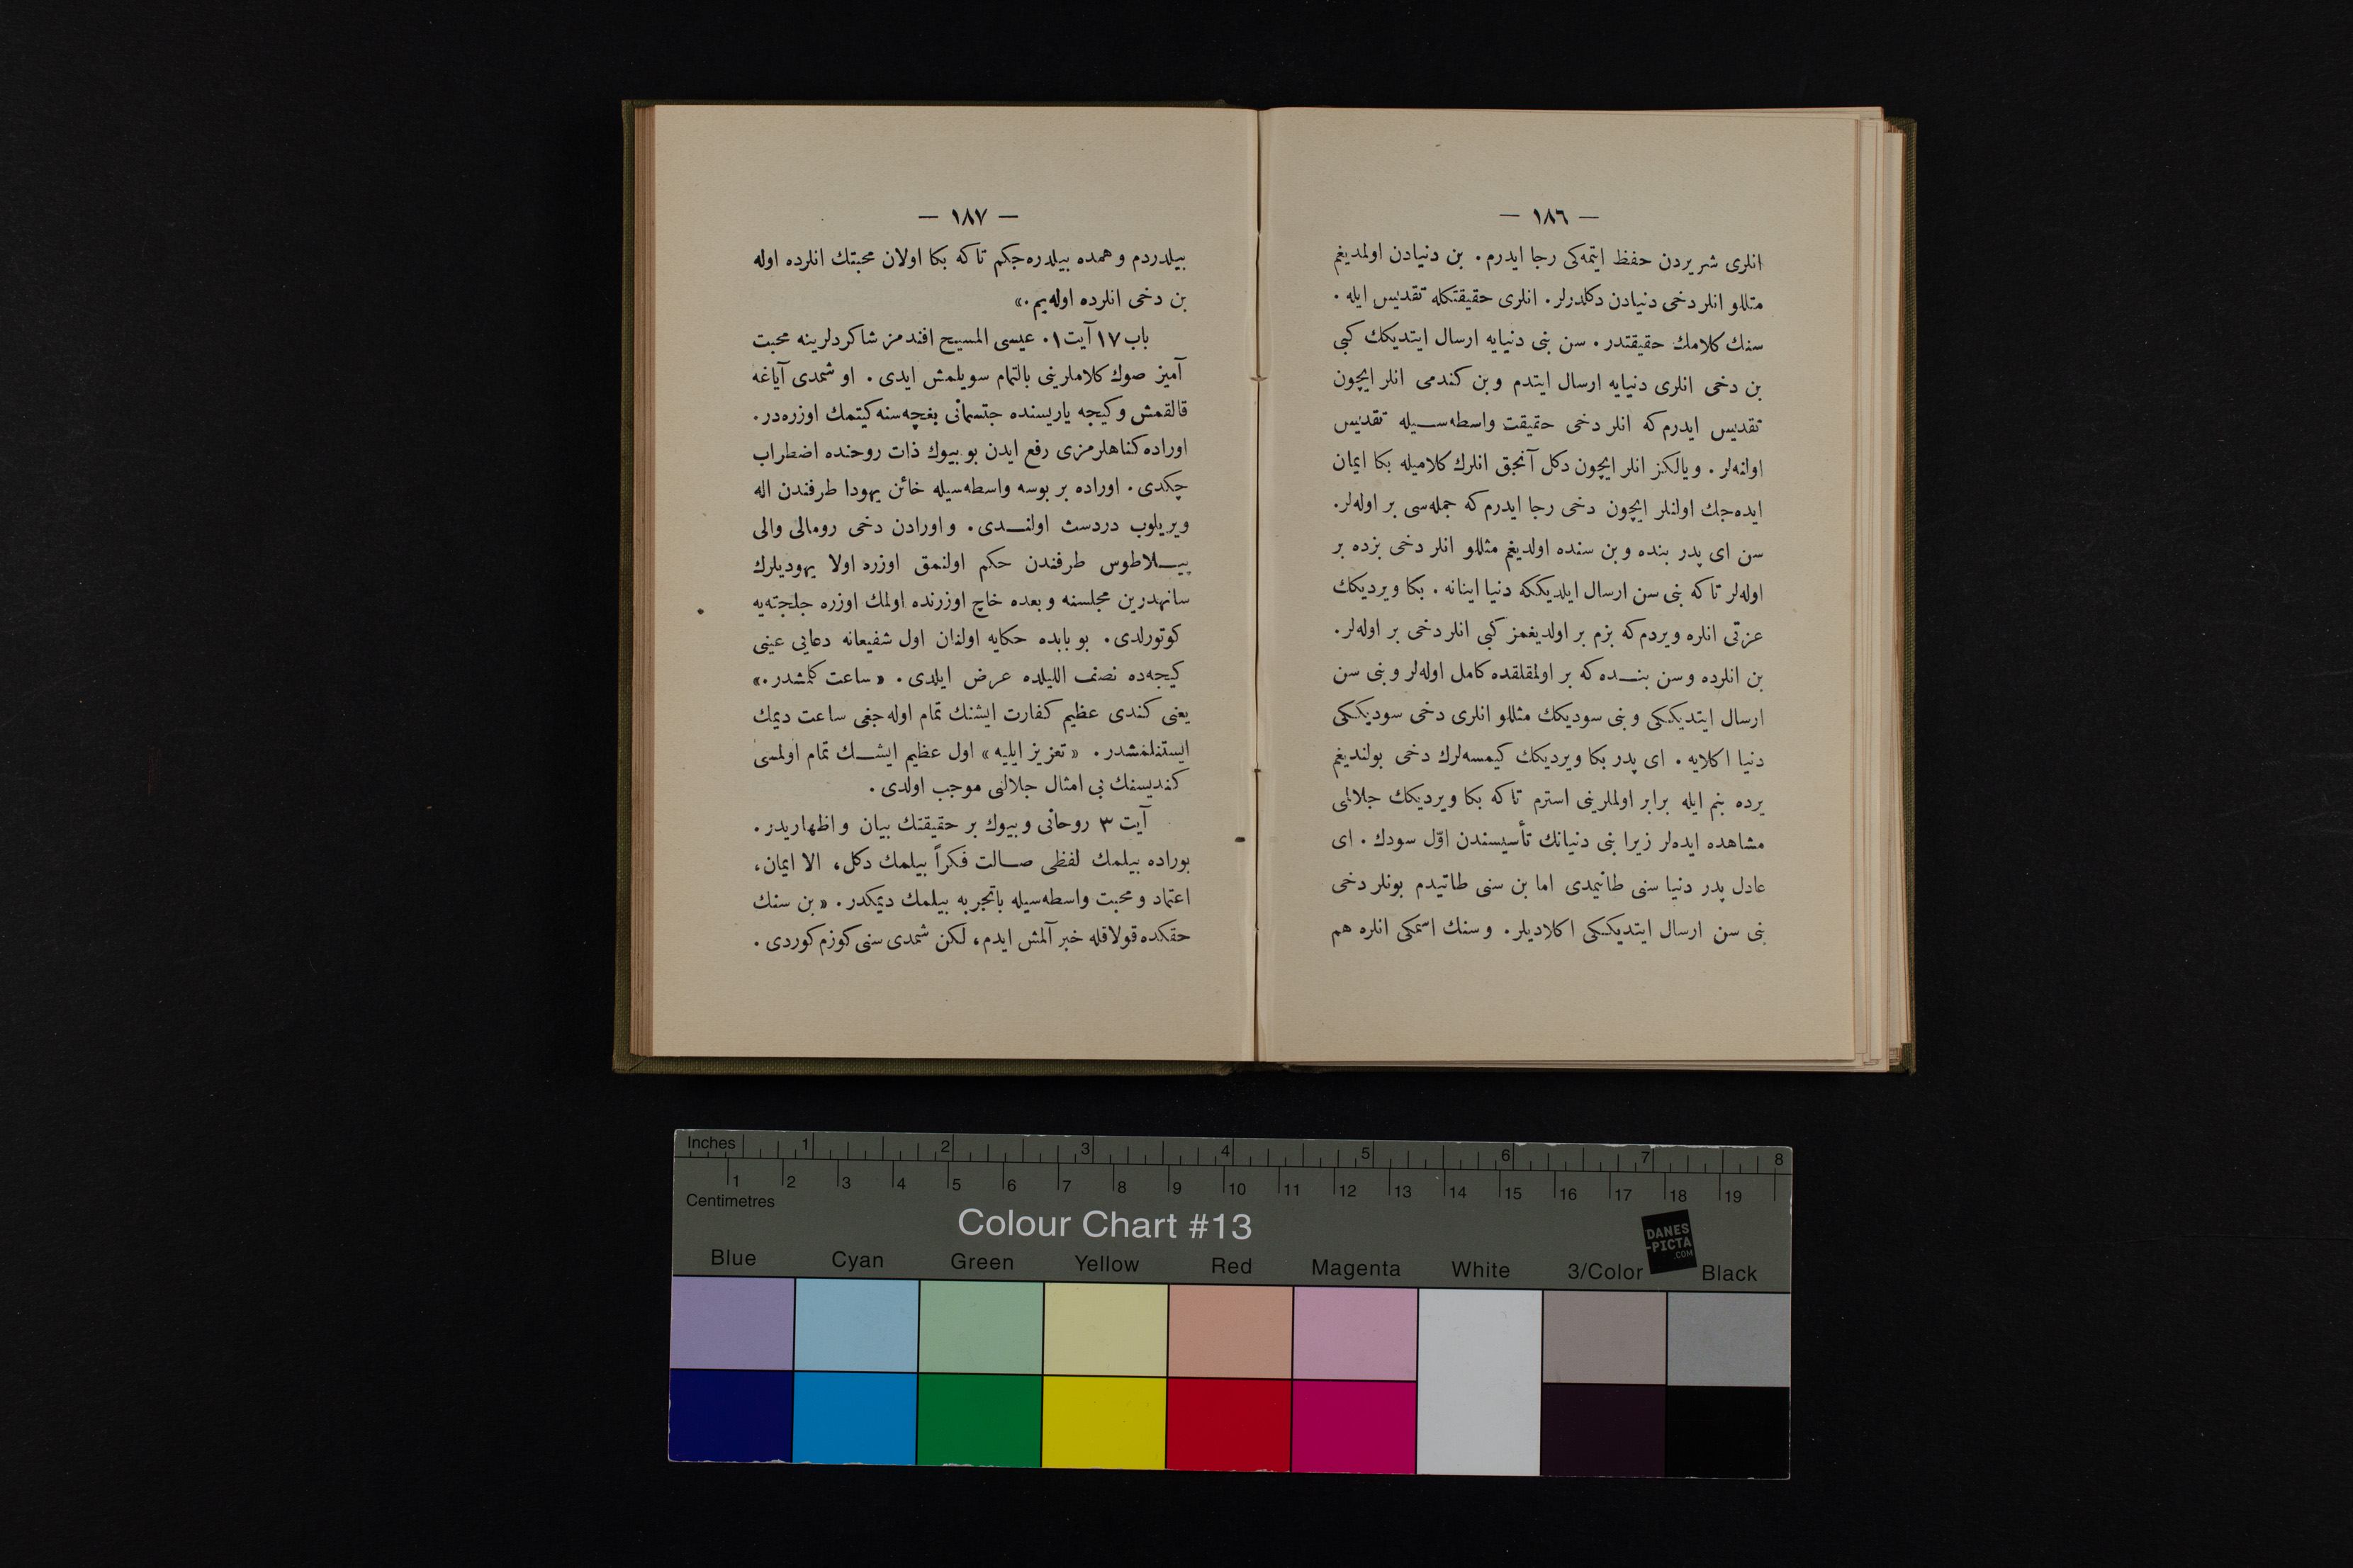 — ١٨٦ —
انلری شریردن حفظ ایتمه‌كی رجا ایدرم. بن دنیادن اولمدیغم
مثللو انلر دخی دنیادن دكلدرلر. انلری حقیقتكله تقدیس ایله.
سنك كلامك حقیقتدر. سن بنی دنیایه ارسال ایتدیكك كبی
بن دخی انلری دنیایه ارسال ایتدم و بن كندمی انلر ایچون
تقدیس ایدرم كه انلر دخی حقیقت واسطه‌سیله تقدیس
اولنه‌لر. و یالكز انلر ایچون دكل آنجق انلرك كلامیله بكا ایمان
ایده‌جك اولنلر ایچون دخی رجا ایدرم كه جمله‌سی بر اوله‌لر.
سن ای پدر بنده و بن سنده اولدیغم مثللو انلر دخی بزده بر
اوله‌لر تا كه بنی سن ارسال ایلدیككه دنیا اینانه. بكا ویردیكك
عزتی انلره ویردم كه بزم بر اولدیغمز كبی انلر دخی بر اوله‌لر.
بن انلرده و سن بنده كه بر اولمقلقده كامل اوله‌لر و بنی سن
ارسال ایتدیككی و بنی سودیكك مثللو انلری دخی سودیككی
دنیا اكلایه. ای پدر بكا ویردیكك كیمسه‌لرك دخی بولندیغم
یرده بنم ایله برابر اولملرینی استرم تا كه بكا ویردیكك جلالمی
مشاهده ایده‌لر زیرا بنی دنیانك تأسیسندن اوّل سودك. ای
عادل پدر دنیا سنی طانیمدی اما بن سنی طانیدم بونلر دخی
بنی سن ارسال ایتدیككی اكلادیلر. و سنك اسمكی انلره هم
— ١٨٧ —
بیلدردم و همده بیلدره‌جكم تا كه بكا اولان محبتك انلرده اوله
بن دخی انلرده اوله‌یم.»
باب ١٧ آیت ١. عیسی المسیح افندمز شاكردلرینه محبت
آمیز صوك كلاملرینی بالتمام سویلمش ایدی. او شمدی آیاغه
قالقمش و كیجه یاریسنده جتسمانی بغچه‌سنه كیتمك اوزره‌در.
اوراده كناهلرمزی رفع ایدن بو بیوك ذات روحنده اضطراب
چكدی. اوراده بر بوسه واسطه‌سیله خائن یهودا طرفندن اله
ویریلوب دردست اولندی. و اورادن دخی رومالی والی
پیلاطوس طرفندن حكم اولنمق اوزره اولا یهودیلرك
سانهدرین مجلسنه و بعده خاچ اوزرنده اولمك اوزره جلجته‌یه
كوتورلدی. بو بابده حكایه اولنان اول شفیعانه دعایی عینی
كیجه‌ده نصف اللیلده عرض ایلدی. «ساعت كلمشدر.»
یعنی كندی عظیم كفارت ایشنك تمام اوله‌جغی ساعت دیمك
ایستنلمشدر. «تعزیز ایلیه» اول عظیم ایشك تمام اولمسی
كندیسنك بی امثال جلالنی موجب اولدی.
آیت ٣ روحانی و بیوك بر حقیقتك بیان و اظهاریدر.
بوراده بیلمك لفظی صالت فكراً بیلمك دكل، الا ایمان،
اعتماد و محبت واسطه‌سیله باتجربه بیلمك دیمكدر. «بن سنك
حقكده قولاقله خبر آلمش ایدم، لكن شمدی سنی كوزم كوردی.
Inches 1 2 3 4 5 6 7 8
1 2 3 4 5 6 7 8 9 10 11 12 13 14 15 16 17 18 19
Centimetres
Colour Chart #13
DANES
-PICTA
.COM
Blue Cyan Green Yellow Red Magenta White 3/Color Black